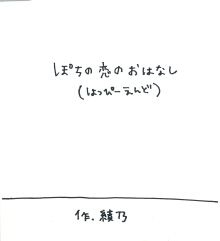 ぽちの恋のおはなし
(はっぴーえんど)
作.績乃